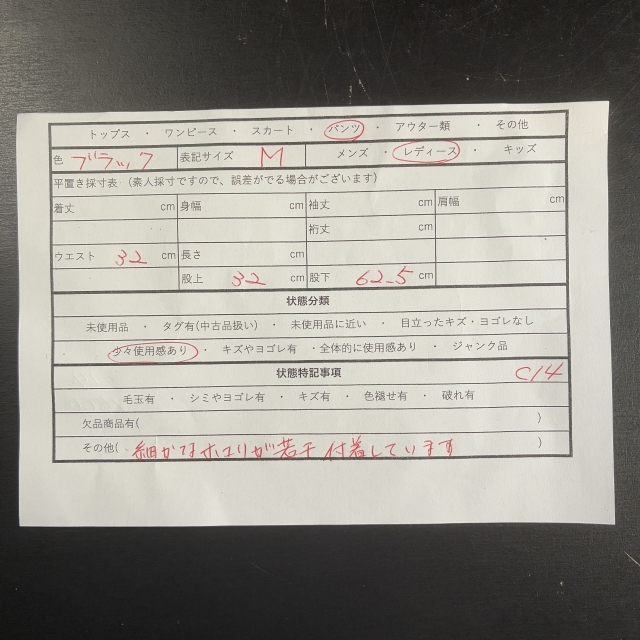 トップス ・ ワンピース ・ スカート ・ パンツ ・ アウター類 ・ その他
色 ブラック 表記サイズ M メンズ ・ レディース ・ キッズ
平置き採寸表 (素人採寸ですので、誤差がでる場合がございます)
着丈 cm 身幅 cm 袖丈 cm 肩幅 cm
裄丈 cm
ウエスト 32 cm 長さ
股上 32 cm 股下 62.5 cm
状態分類
未使用品 ・ タグ有(中古品扱い) ・ 未使用品に近い ・ 目立ったキズ・ヨゴレなし
少々使用感あり ・ キズやヨゴレ有 ・全体的に使用感あり ・ ジャンク品
状態特記事項 C14
毛玉有 ・ シミやヨゴレ有 ・ キズ有 ・ 色褪せ有 ・ 破れ有
欠品商品有( )
その他( ・細かなホコリが若干付着しています )